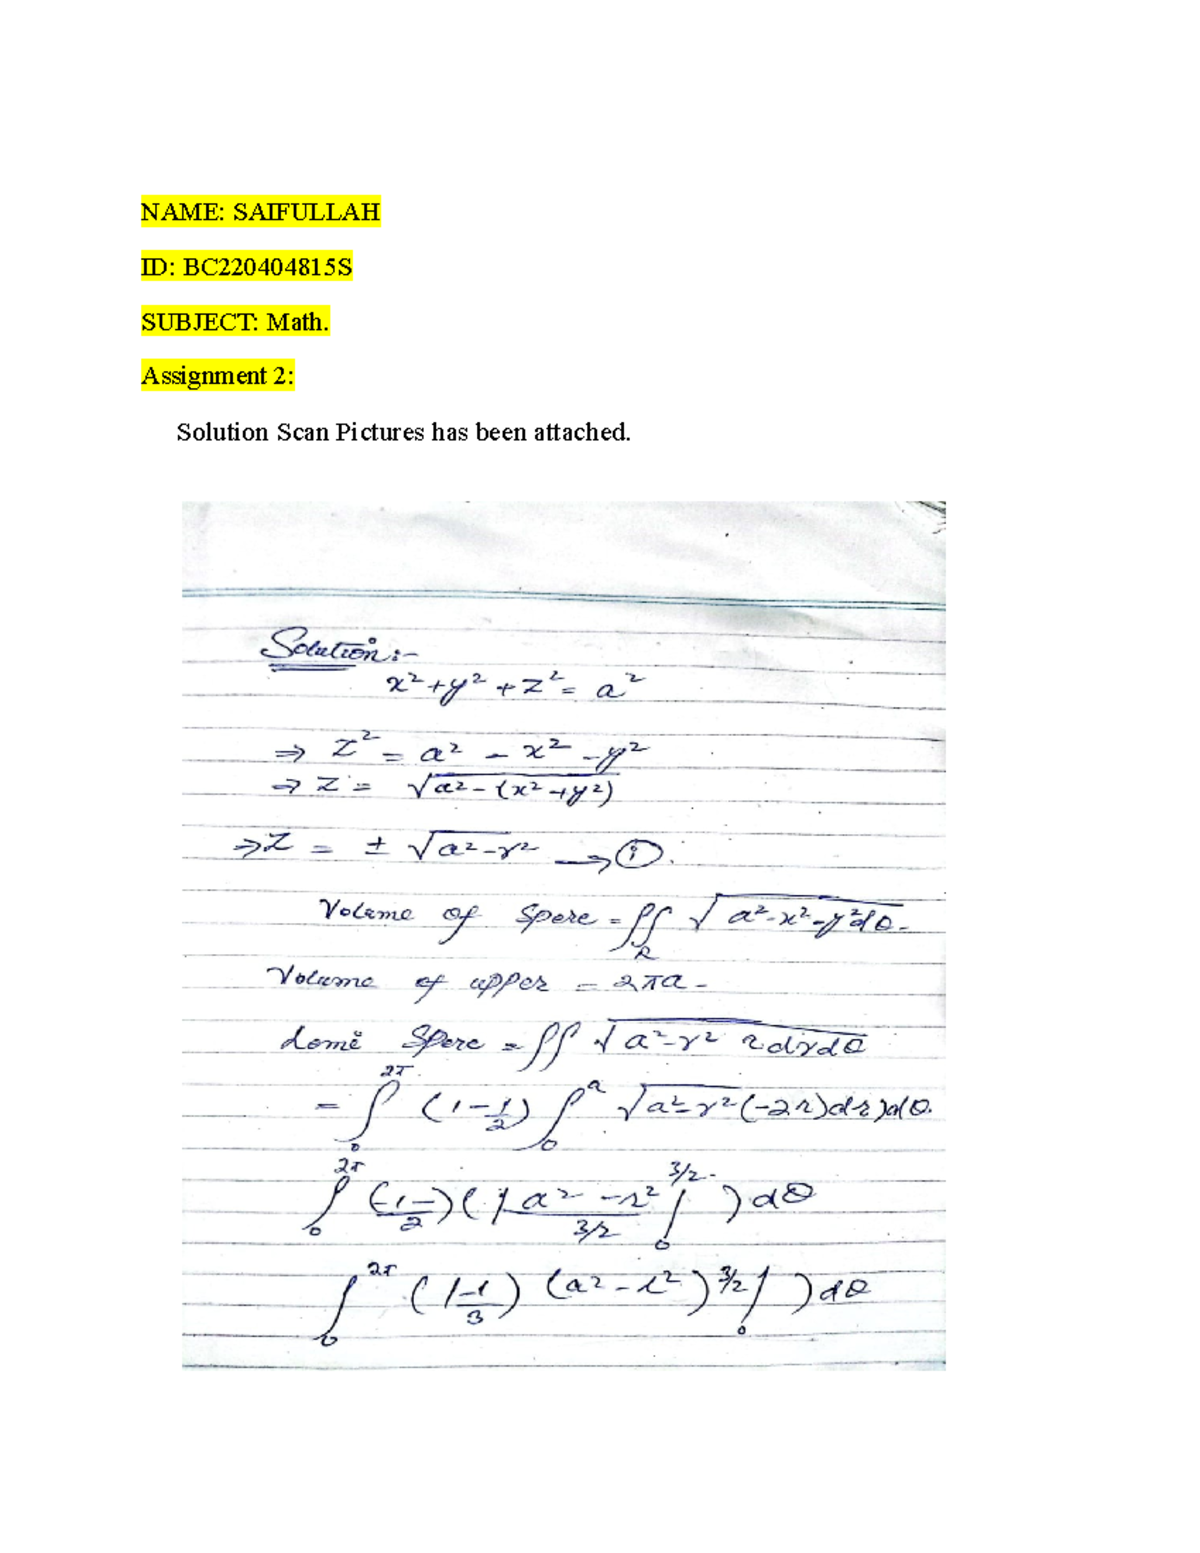 NAME: SAIFULLAH
ID: BC220404815S
SUBJECT: Math.
Assignment 2:
Solution Scan Pictures has been attached.
Solution:-
x² + y² + z² = a²
⇒ z² = a² - x² - y²
⇒ z = √a² - (x² + y²)
⇒ z = ± √a² - r² → (i).
Volume of Spere = ∬_R √a² - x² - y² dθ.
Volume of upper = 2πa -
Lome Spere = ∬ √a² - r² r dr dθ
= ∫₀^2π (1-1/2) ∫₀^a √a² - r² (-2r) dr) dθ.
∫₀^2π (-1/2) ( (a² - r²/3/2 |₀ ^3/2 ) dθ
∫₀^2π (1-1/3) (a² - r²)^3/2 |₀ ) dθ